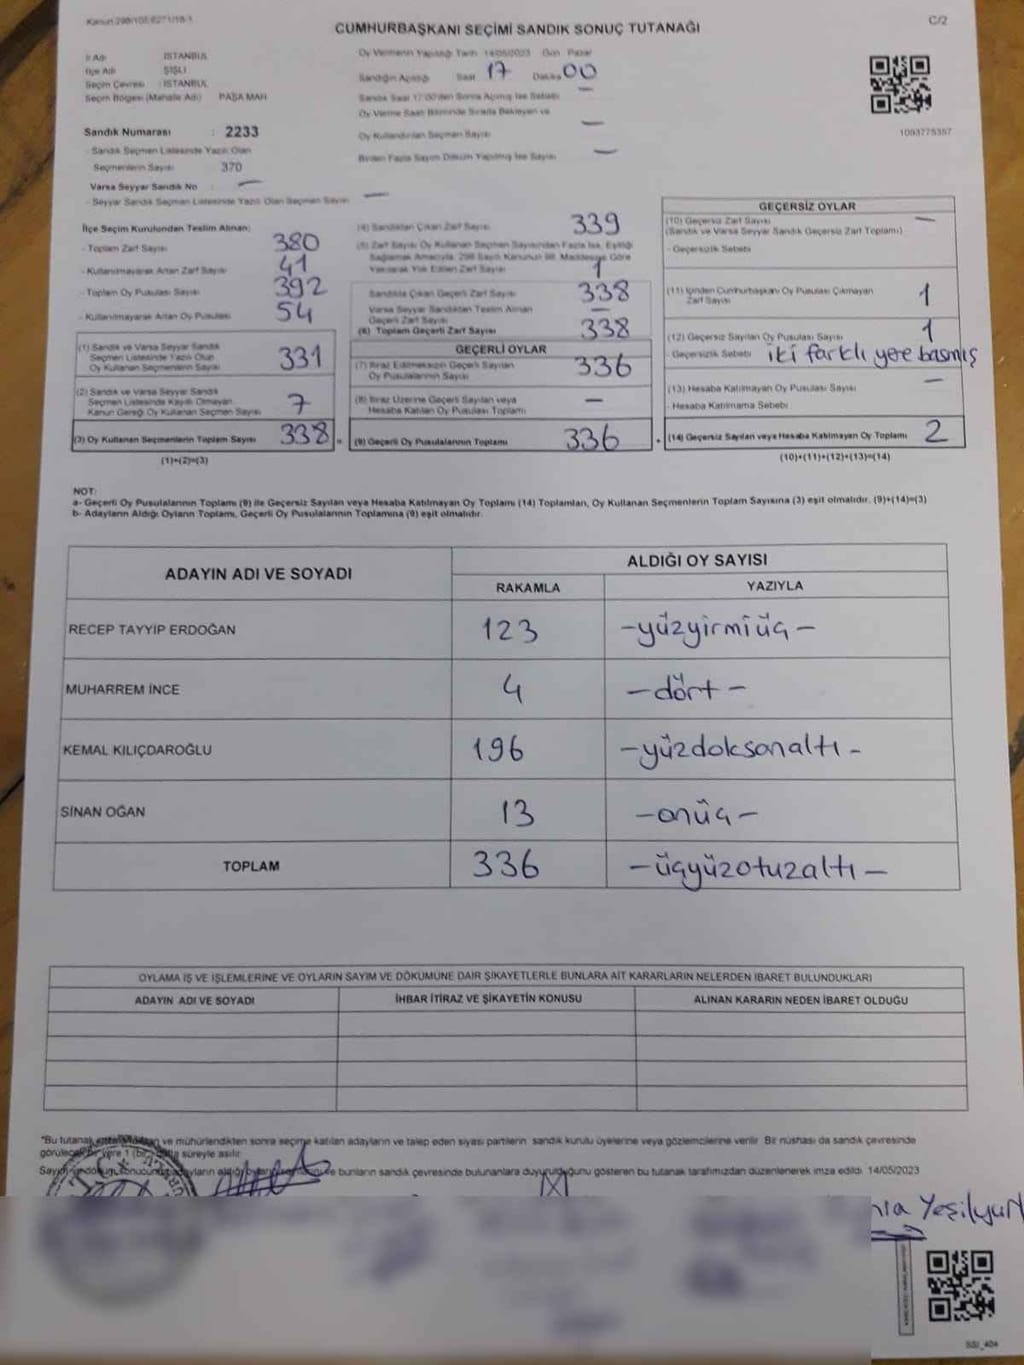 Kanun:298/105,6271/18-1
C/2
CUMHURBAŞKANI SEÇİMİ SANDIK SONUÇ TUTANAĞI
İl Adı : İSTANBUL
İlçe Adı : ŞİŞLİ
Seçim Çevresi : İSTANBUL
Seçim Bölgesi (Mahalle Adı) PAŞA MAH
Sandık Numarası : 2233
- Sandık Seçmen Listesinde Yazılı Olan
Seçmenlerin Sayısı 370
Varsa Seyyar Sandık No : —
- Seyyar Sandık Seçmen Listesinde Yazılı Olan Seçmen Sayısı —
Oy Vermenin Yapıldığı Tarih 14/05/2023 Gün Pazar
Sandığın Açıldığı Saat 17 Dakika 00
Sandık Saat 17:00'den Sonra Açılmış İse Sebebi —
Oy Verme Saati Bitiminde Sırada Bekleyen ve
Oy Kullandırılan Seçmen Sayısı —
Birden Fazla Sayım Döküm Yapılmış İse Sayısı —
1093775357
İlçe Seçim Kurulundan Teslim Alınan:
- Toplam Zarf Sayısı 380
- Kullanılmayarak Artan Zarf Sayısı 41
- Toplam Oy Pusulası Sayısı 392
- Kullanılmayarak Artan Oy Pusulası 54
(1) Sandık ve Varsa Seyyar Sandık
Seçmen Listesinde Yazılı Olup
Oy Kullanan Seçmenlerin Sayısı 331
(2) Sandık ve Varsa Seyyar Sandık
Seçmen Listesinde Kayıtlı Olmayan
Kanun Gereği Oy Kullanan Seçmen Sayısı 7
(3) Oy Kullanan Seçmenlerin Toplam Sayısı 338 =
(1)+(2)=(3)
(4) Sandıktan Çıkan Zarf Sayısı 339
(5) Zarf Sayısı Oy Kullanan Seçmen Sayısından Fazla İse, Eşitliği
Sağlamak Amacıyla, 298 Sayılı Kanunun 98. Maddesine Göre
Yakılarak Yok Edilen Zarf Sayısı 1
Sandıkta Çıkan Geçerli Zarf Sayısı 338
Varsa Seyyar Sandıktan Teslim Alınan
Geçerli Zarf Sayısı —
(6) Toplam Geçerli Zarf Sayısı 338
GEÇERLİ OYLAR
(7) İtiraz Edilmeksizin Geçerli Sayılan
Oy Pusulalarının Sayısı 336
(8) İtiraz Üzerine Geçerli Sayılan veya
Hesaba Katılan Oy Pusulası Toplamı —
(9) Geçerli Oy Pusulalarının Toplamı 336 +
GEÇERSİZ OYLAR
(10) Geçersiz Zarf Sayısı —
(Sandık ve Varsa Seyyar Sandık Geçersiz Zarf Toplamı)
- Geçersizlik Sebebi
(11) İçinden Cumhurbaşkanı Oy Pusulası Çıkmayan
Zarf Sayısı 1
(12) Geçersiz Sayılan Oy Pusulası Sayısı 1
- Geçersizlik Sebebi iki farklı yere basmış
(13) Hesaba Katılmayan Oy Pusulası Sayısı —
- Hesaba Katılmama Sebebi
(14) Geçersiz Sayılan veya Hesaba Katılmayan Oy Toplamı 2
(10)+(11)+(12)+(13)=(14)
NOT:
a- Geçerli Oy Pusulalarının Toplamı (9) ile Geçersiz Sayılan veya Hesaba Katılmayan Oy Toplamı (14) Toplamları, Oy Kullanan Seçmenlerin Toplam Sayısına (3) eşit olmalıdır. (9)+(14)=(3)
b- Adayların Aldığı Oyların Toplamı, Geçerli Oy Pusulalarının Toplamına (9) eşit olmalıdır.
ADAYIN ADI VE SOYADI
ALDIĞI OY SAYISI
RAKAMLA YAZIYLA
RECEP TAYYİP ERDOĞAN 123 -yüzyirmiüç-
MUHARREM İNCE 4 -dört-
KEMAL KILIÇDAROĞLU 196 -yüzdoksanaltı-
SİNAN OĞAN 13 -onüç-
TOPLAM 336 -üçyüzotuzaltı-
OYLAMA İŞ VE İŞLEMLERİNE VE OYLARIN SAYIM VE DÖKÜMÜNE DAİR ŞİKAYETLERLE BUNLARA AİT KARARLARIN NELERDEN İBARET BULUNDUKLARI
ADAYIN ADI VE SOYADI İHBAR İTİRAZ VE ŞİKAYETİN KONUSU ALINAN KARARIN NEDEN İBARET OLDUĞU
"Bu tutanak ve mühürlendikten sonra seçime katılan adayların ve talep eden siyasi partilerin sandık kurulu üyelerine veya gözlemcilerine verilir. Bir nüshası da sandık çevresinde
yere 1 (bir) süreyle asılır.
adayların aldığı bunların sandık çevresinde bulunanlara duyurulduğunu gösteren bu tutanak tarafımızdan düzenlenerek imza edildi. 14/05/2023
Yeşilyurt
SSI_404